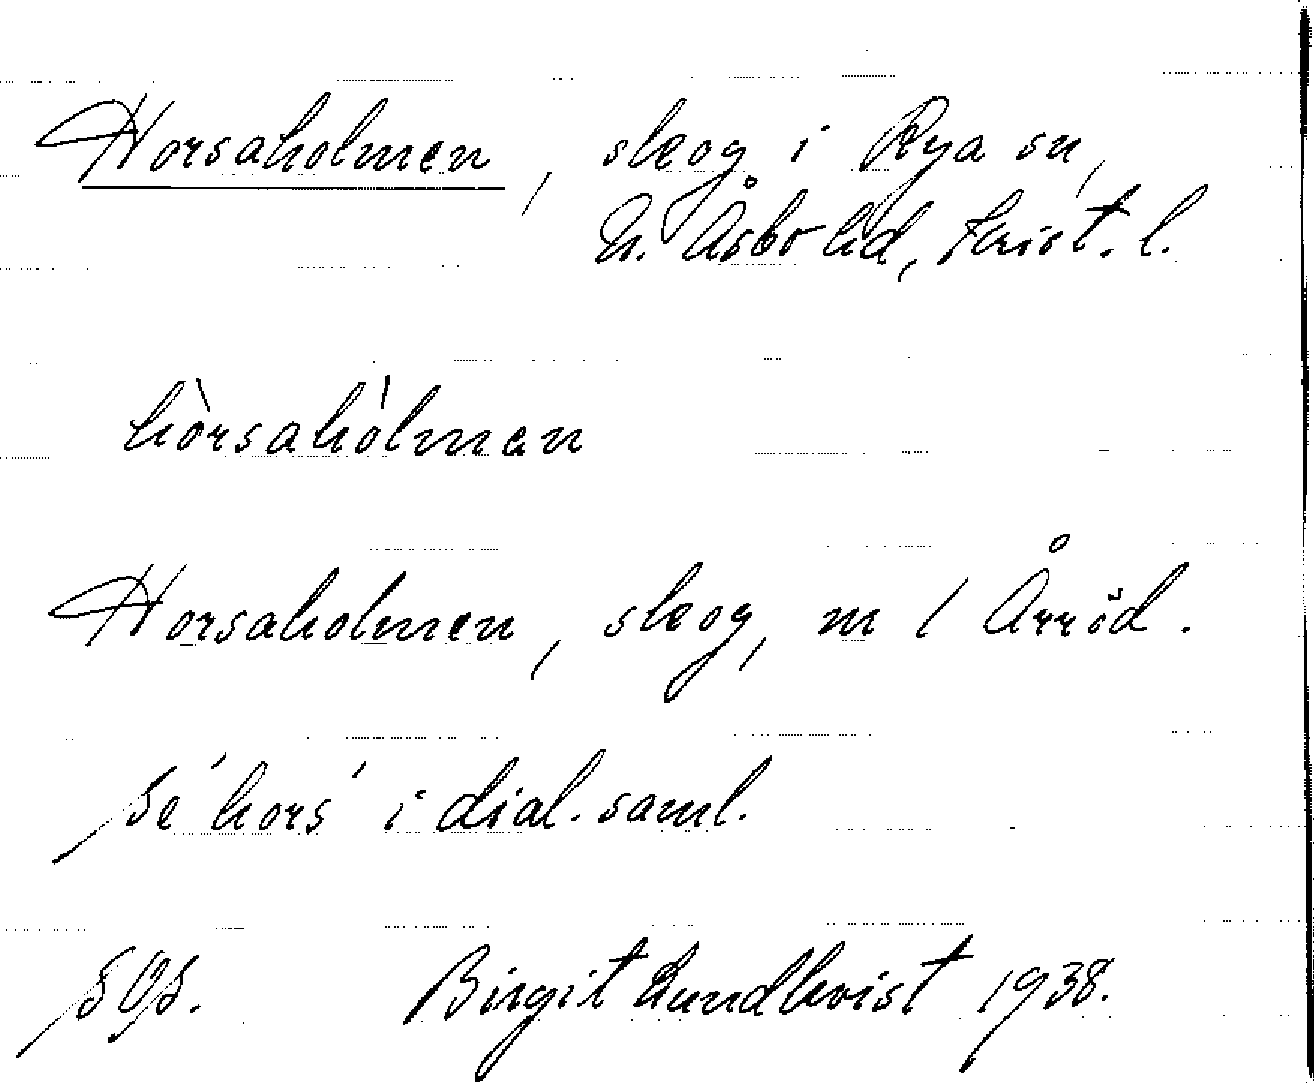 Horsaholmen, skog i Rya sn,
N. Åsbo hd, Krist. l.
hòrsahòlmen
Horsaholmen, skog, m / Årröd.
Se 'hors' i dial. saml.
SOS. Birgit Lundkvist 1938.